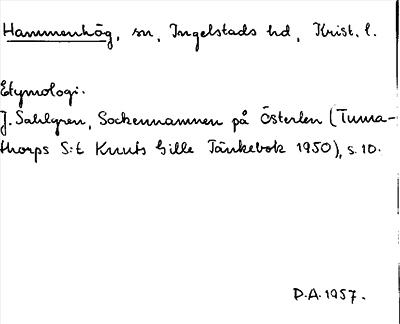 Hammenhög, sn, Ingelstads hd, Krist. l.
Etymologi.
J. Sahlgren, Sockennamnen på Österlen (Tuma-
thorps S:t Knuts Gille Tänkebok 1950), s. 10.
D.A. 1957.